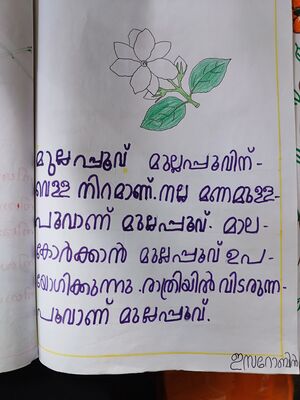 മുല്ലപ്പൂവ് മുല്ലപ്പൂവിന്-
വെള്ള നിറമാണ്. നല്ല മണമുള്ള-
പൂവാണ് മുല്ലപ്പൂവ്. മാല-
കോർക്കാൻ മുല്ലപ്പൂവ് ഉപ-
യോഗിക്കുന്നു. രാത്രിയിൽ വിടരുന്ന-
പൂവാണ് മുല്ലപ്പൂവ്.
ഇസറോബിൻ